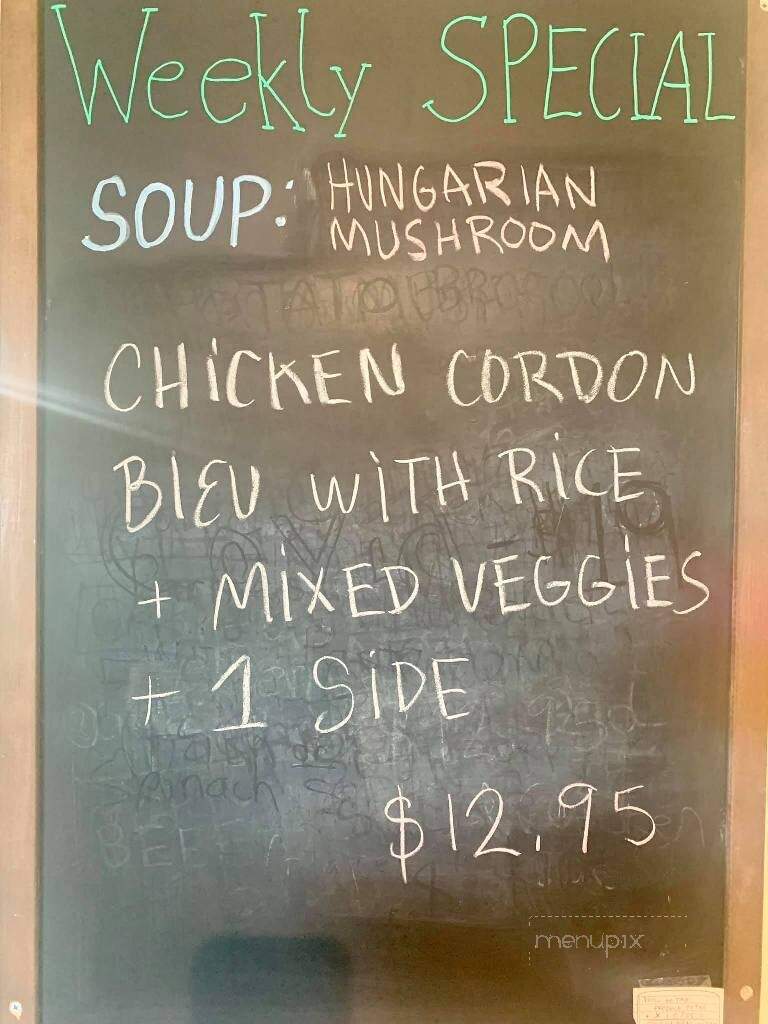 Weekly SPECIAL
SOUP: HUNGARIAN
MUSHROOM
CHICKEN CORDON
BLEU WITH RICE
+ MIXED VEGGIES
+ 1 SIDE
$12.95
menupix